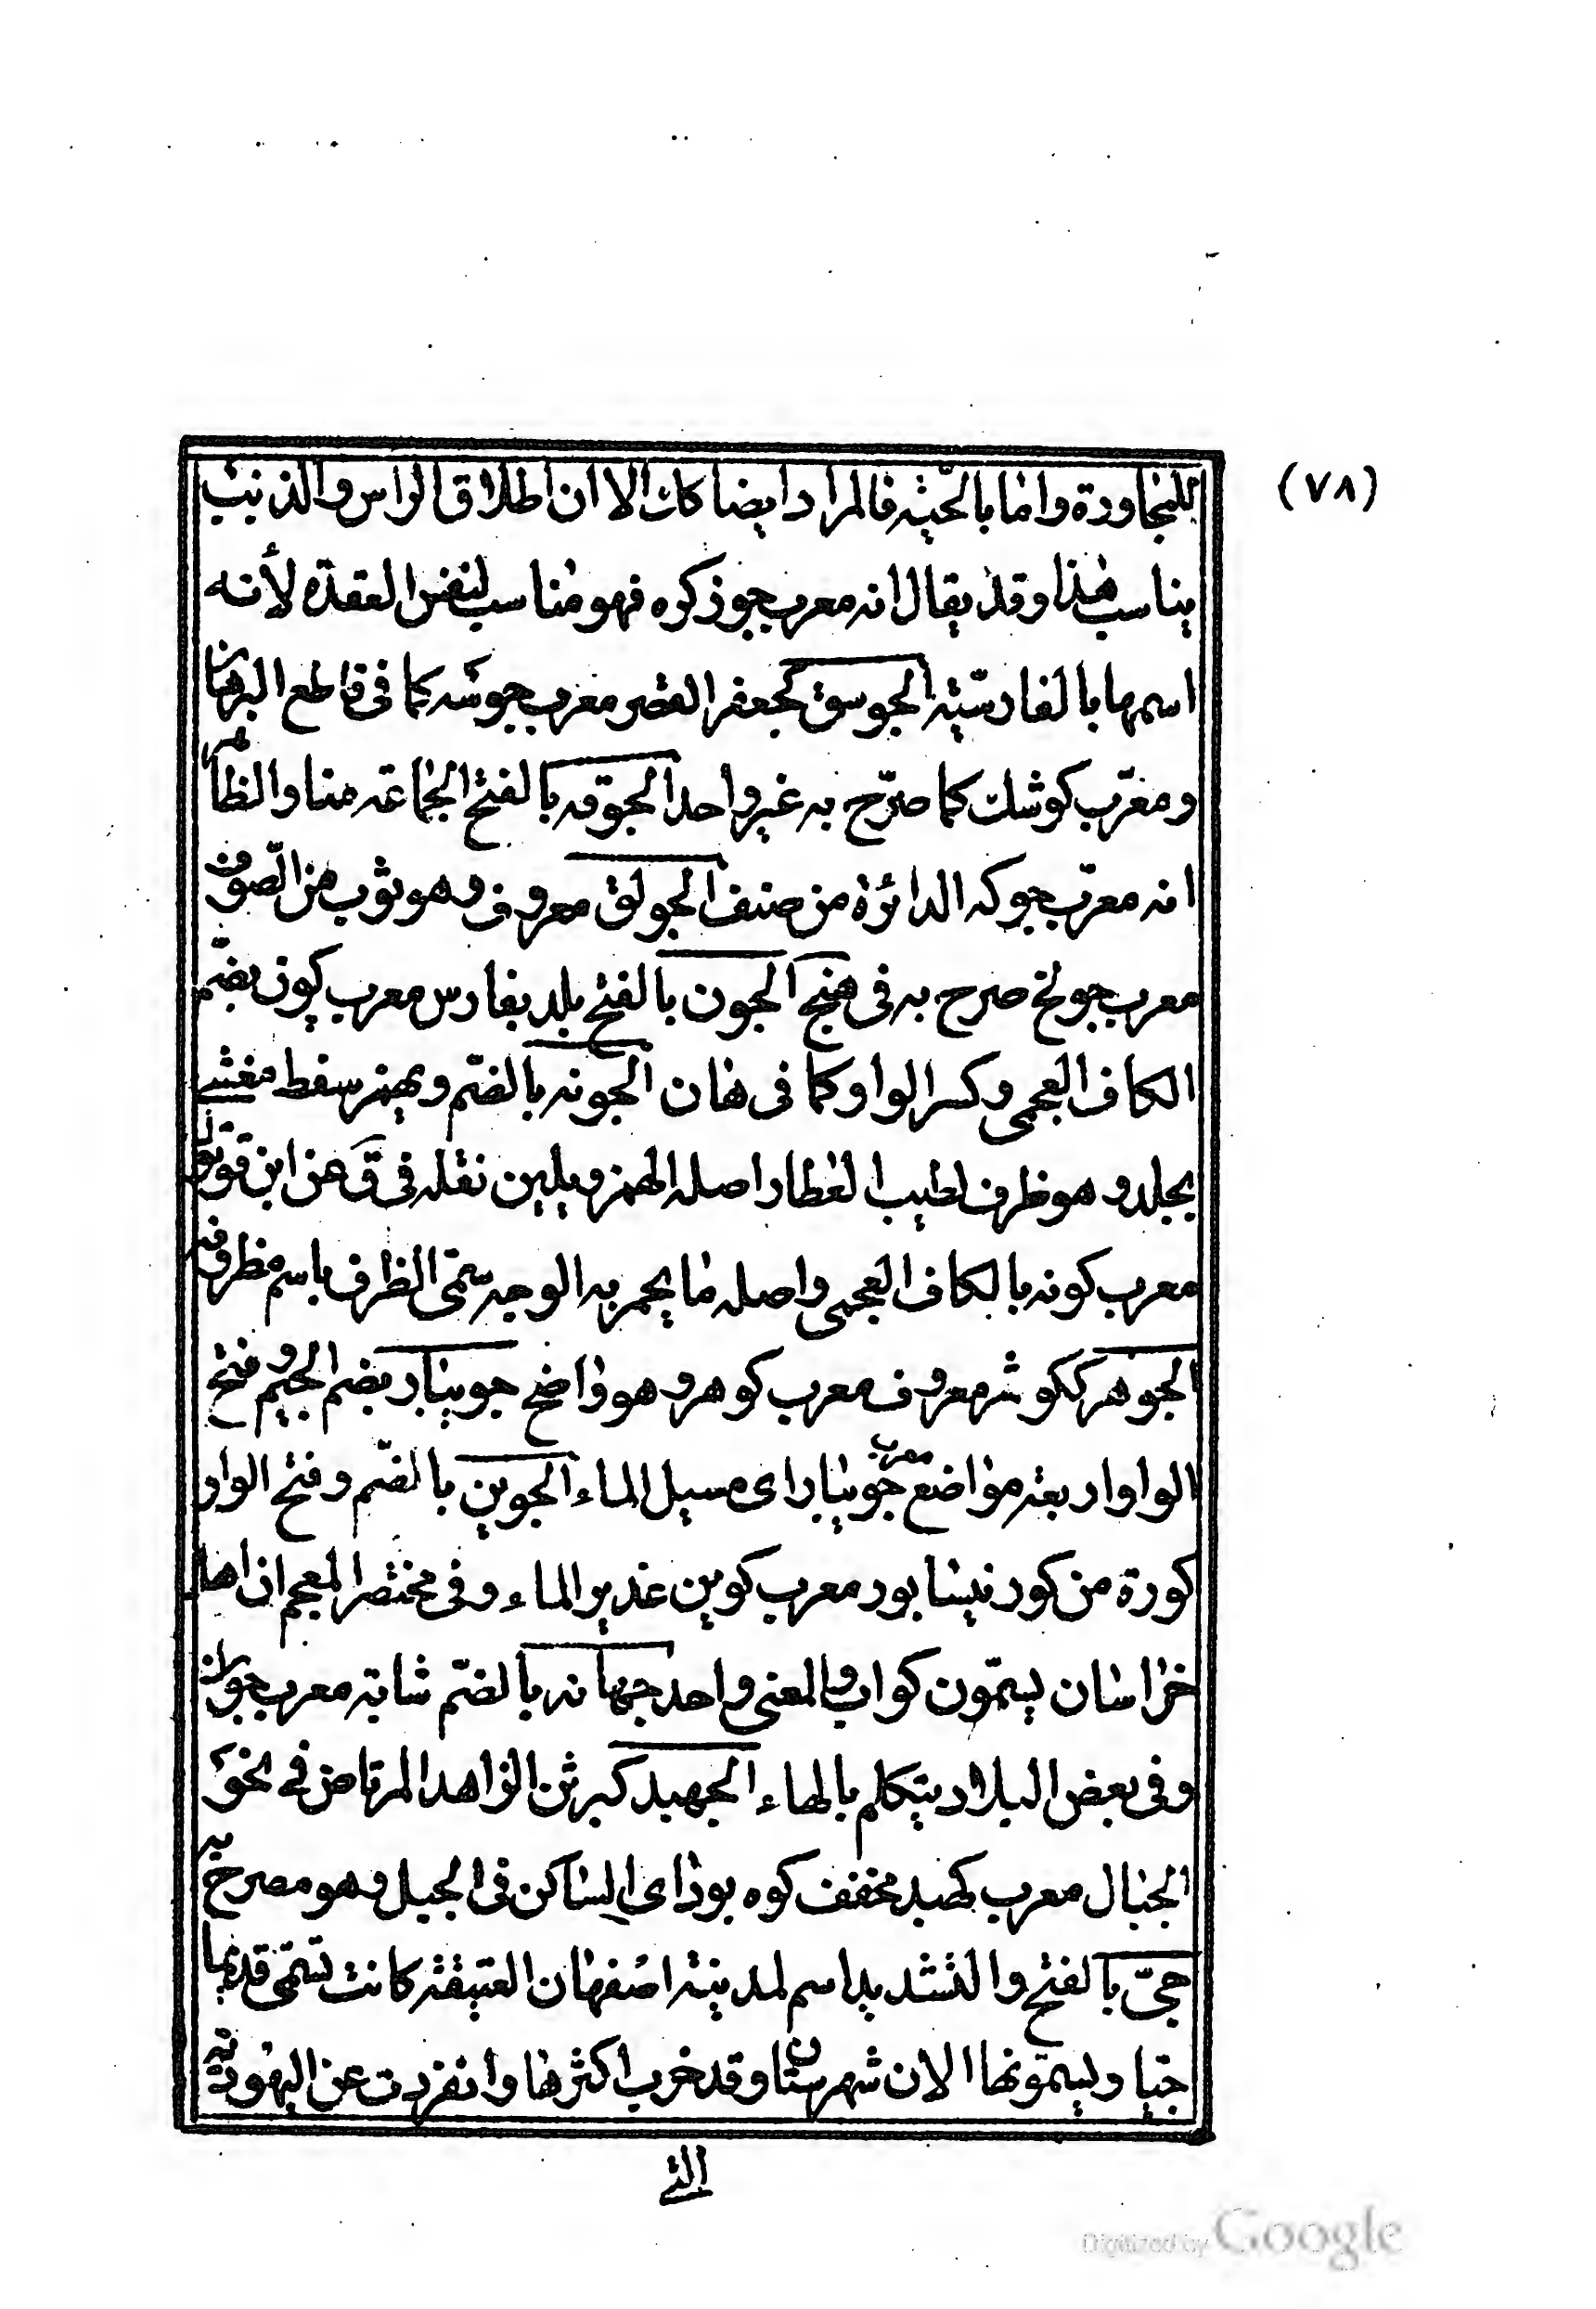 (٧٨)
للمجاورة واما بالحيّة فالمراد ايضا كذلك الا ان اطلاق الراس والذنب
يناسب هذا وقد يقال انه معرب جوز كره فهو مناسب لنفس العقدة لأنه
اسمها بالفارسيّة الجوسق كجعفر القصر معرب جوسه كما فى قاطع البرهان
ومعرّب كوشك كما صرّح به غير واحد الجوقه بالفتح الجماعة منا والظاهر
انه معرّب جوكه الدائرة من صنف الجولق معروف وهو ثوب من الصّوف
معرب جولخ صرح به فى هنج الجون بالفتح بلد بفارس معرب كون بضمّ
الكاف العجمى وكسر الواو كما فى هان الجونه بالضمّ ويهمز سقط مغشى
بجلد وهو ظرف لطيب العطار اصله الهمز ويلين نقله فى ق عن ابن قرقول
معرب كونه بالكاف العجمى واصله ما يحمر به الوجه سمّى الظرف باسم مظروفه
الجوهر ككوثر معروف معرب كوهر وهو واضح جويبار بضم الجيم وفتح
الواو اربعة مواضع معرب جويبار اى مسيل الماء الجوين بالضّم وفتح الواو
كورة من كور نيسابور معرب كوين غدير الماء وفى مختصر المعجم ان اهل
خراسان يسمّون كواب والمعنى واحد جهانه بالضمّ شابة معرب جوانه
وفى بعض البلاد يتكلم بالهاء الجهبد كبرثن الزاهد المرتاض فى نحو
الجبال معرب كهبد مخفف كوه بود اى الساكن فى الجبل وهو مصرح به
جىّ بالفتح والتشديد اسم لمدينة اصفهان العتيقة كانت تسمّى قديما
جيّا ويسمّونها الان شهرستان وقد خرب اكثرها وانفردت عن اليهودية
التى
Digitized by Google